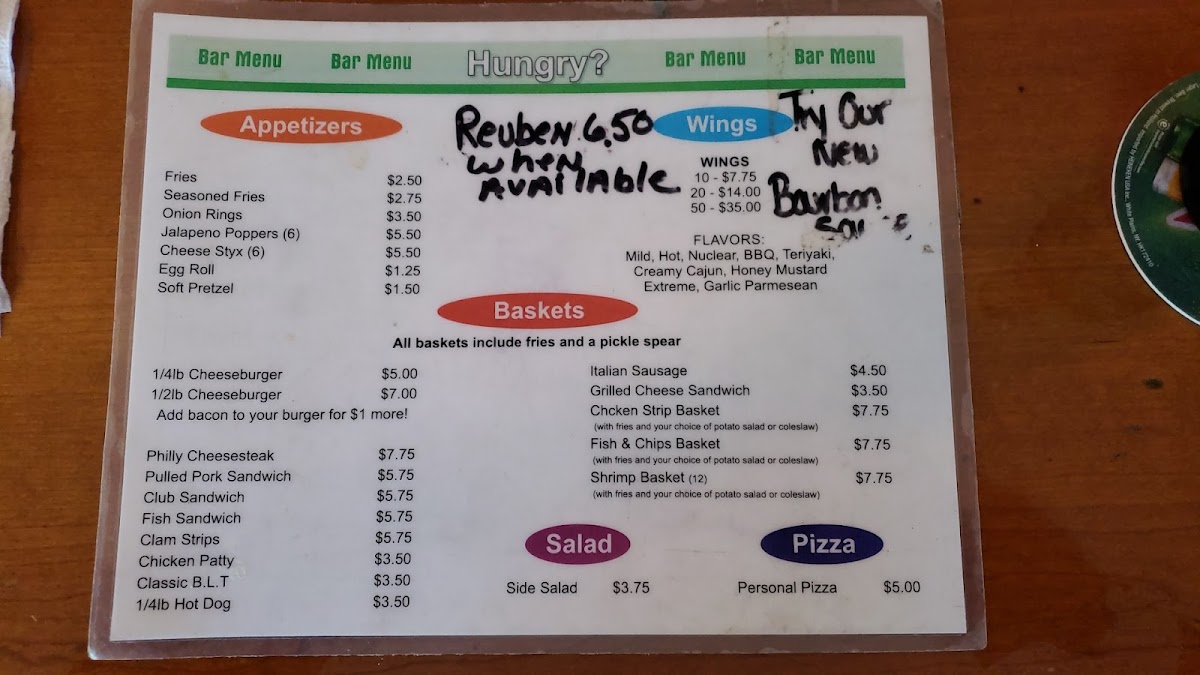 Bar Menu Bar Menu Hungry? Bar Menu Bar Menu
Appetizers
Fries $2.50
Seasoned Fries $2.75
Onion Rings $3.50
Jalapeno Poppers (6) $5.50
Cheese Styx (6) $5.50
Egg Roll $1.25
Soft Pretzel $1.50
Reuben 6.50
when
AVAilAble
Wings
WINGS
10 - $7.75
20 - $14.00
50 - $35.00
Try Our
New
Bourbon
FLAVORS:
Mild, Hot, Nuclear, BBQ, Teriyaki,
Creamy Cajun, Honey Mustard
Extreme, Garlic Parmesean
Baskets
All baskets include fries and a pickle spear
1/4lb Cheeseburger $5.00
1/2lb Cheeseburger $7.00
Add bacon to your burger for $1 more!
Philly Cheesesteak $7.75
Pulled Pork Sandwich $5.75
Club Sandwich $5.75
Fish Sandwich $5.75
Clam Strips $5.75
Chicken Patty $3.50
Classic B.L.T $3.50
1/4lb Hot Dog $3.50
Italian Sausage $4.50
Grilled Cheese Sandwich $3.50
Chcken Strip Basket $7.75
(with fries and your choice of potato salad or coleslaw)
Fish & Chips Basket $7.75
(with fries and your choice of potato salad or coleslaw)
Shrimp Basket (12) $7.75
(with fries and your choice of potato salad or coleslaw)
Salad
Side Salad $3.75
Pizza
Personal Pizza $5.00